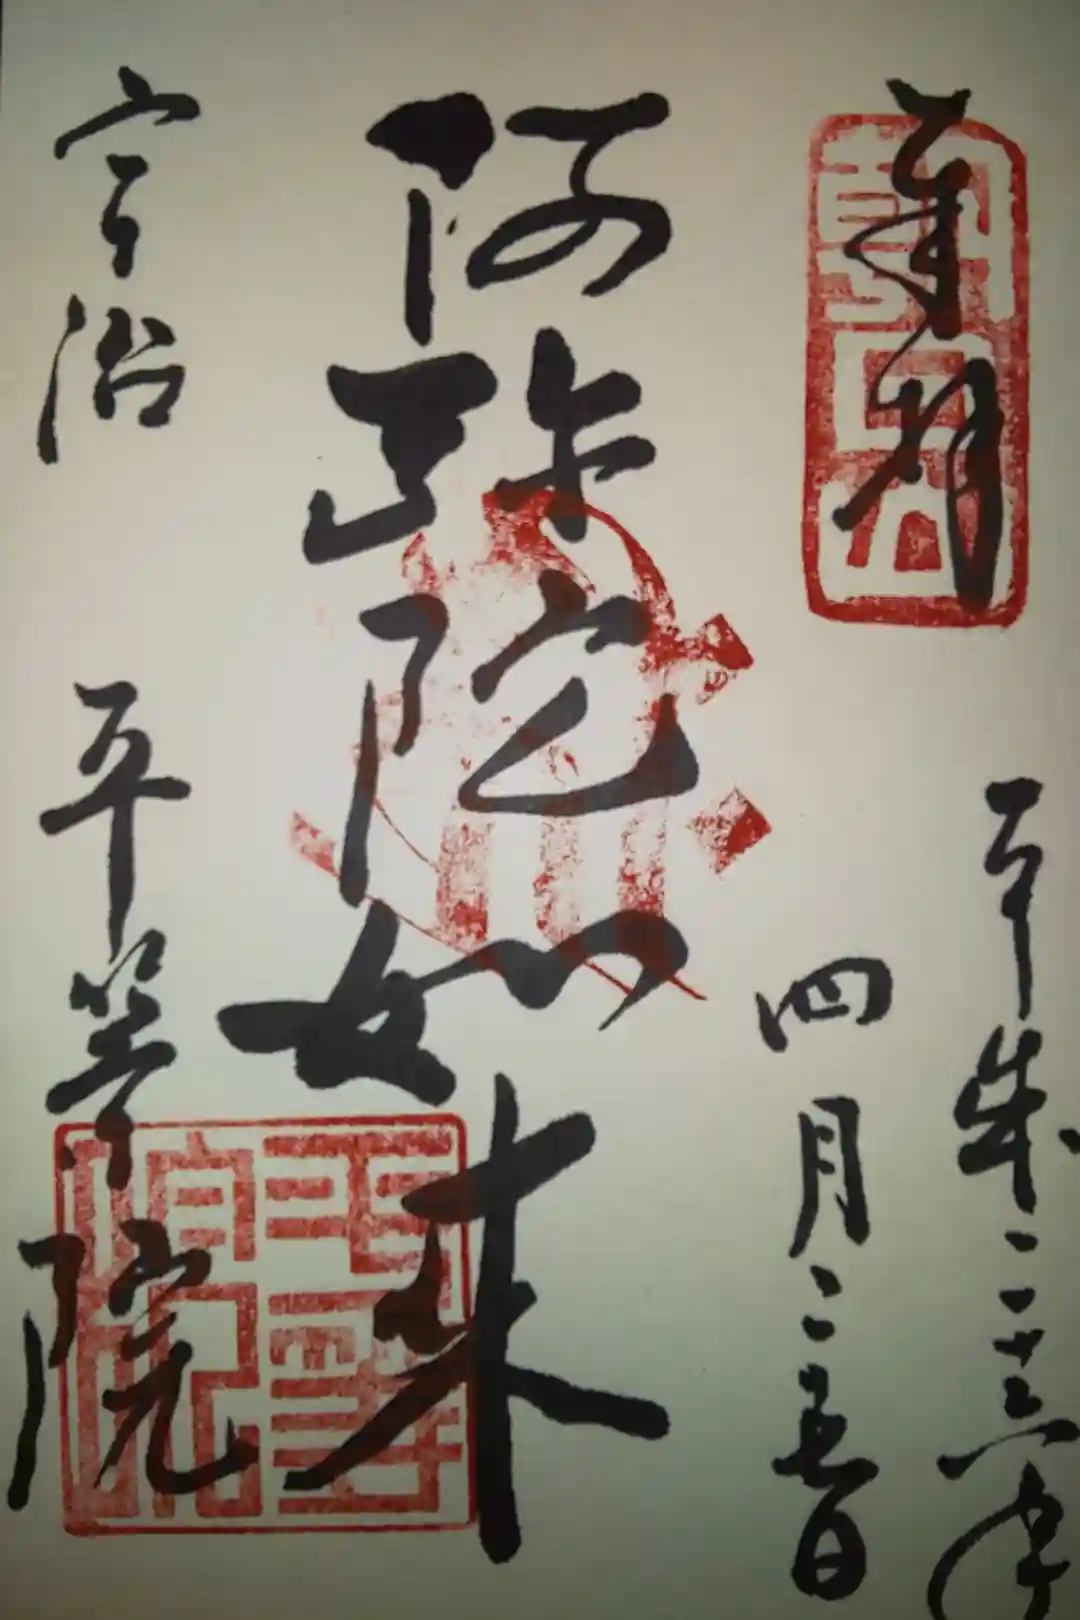 奉拝
朝日山
平成二十三年
四月二十五日
阿弥陀如来
宇治 平等院